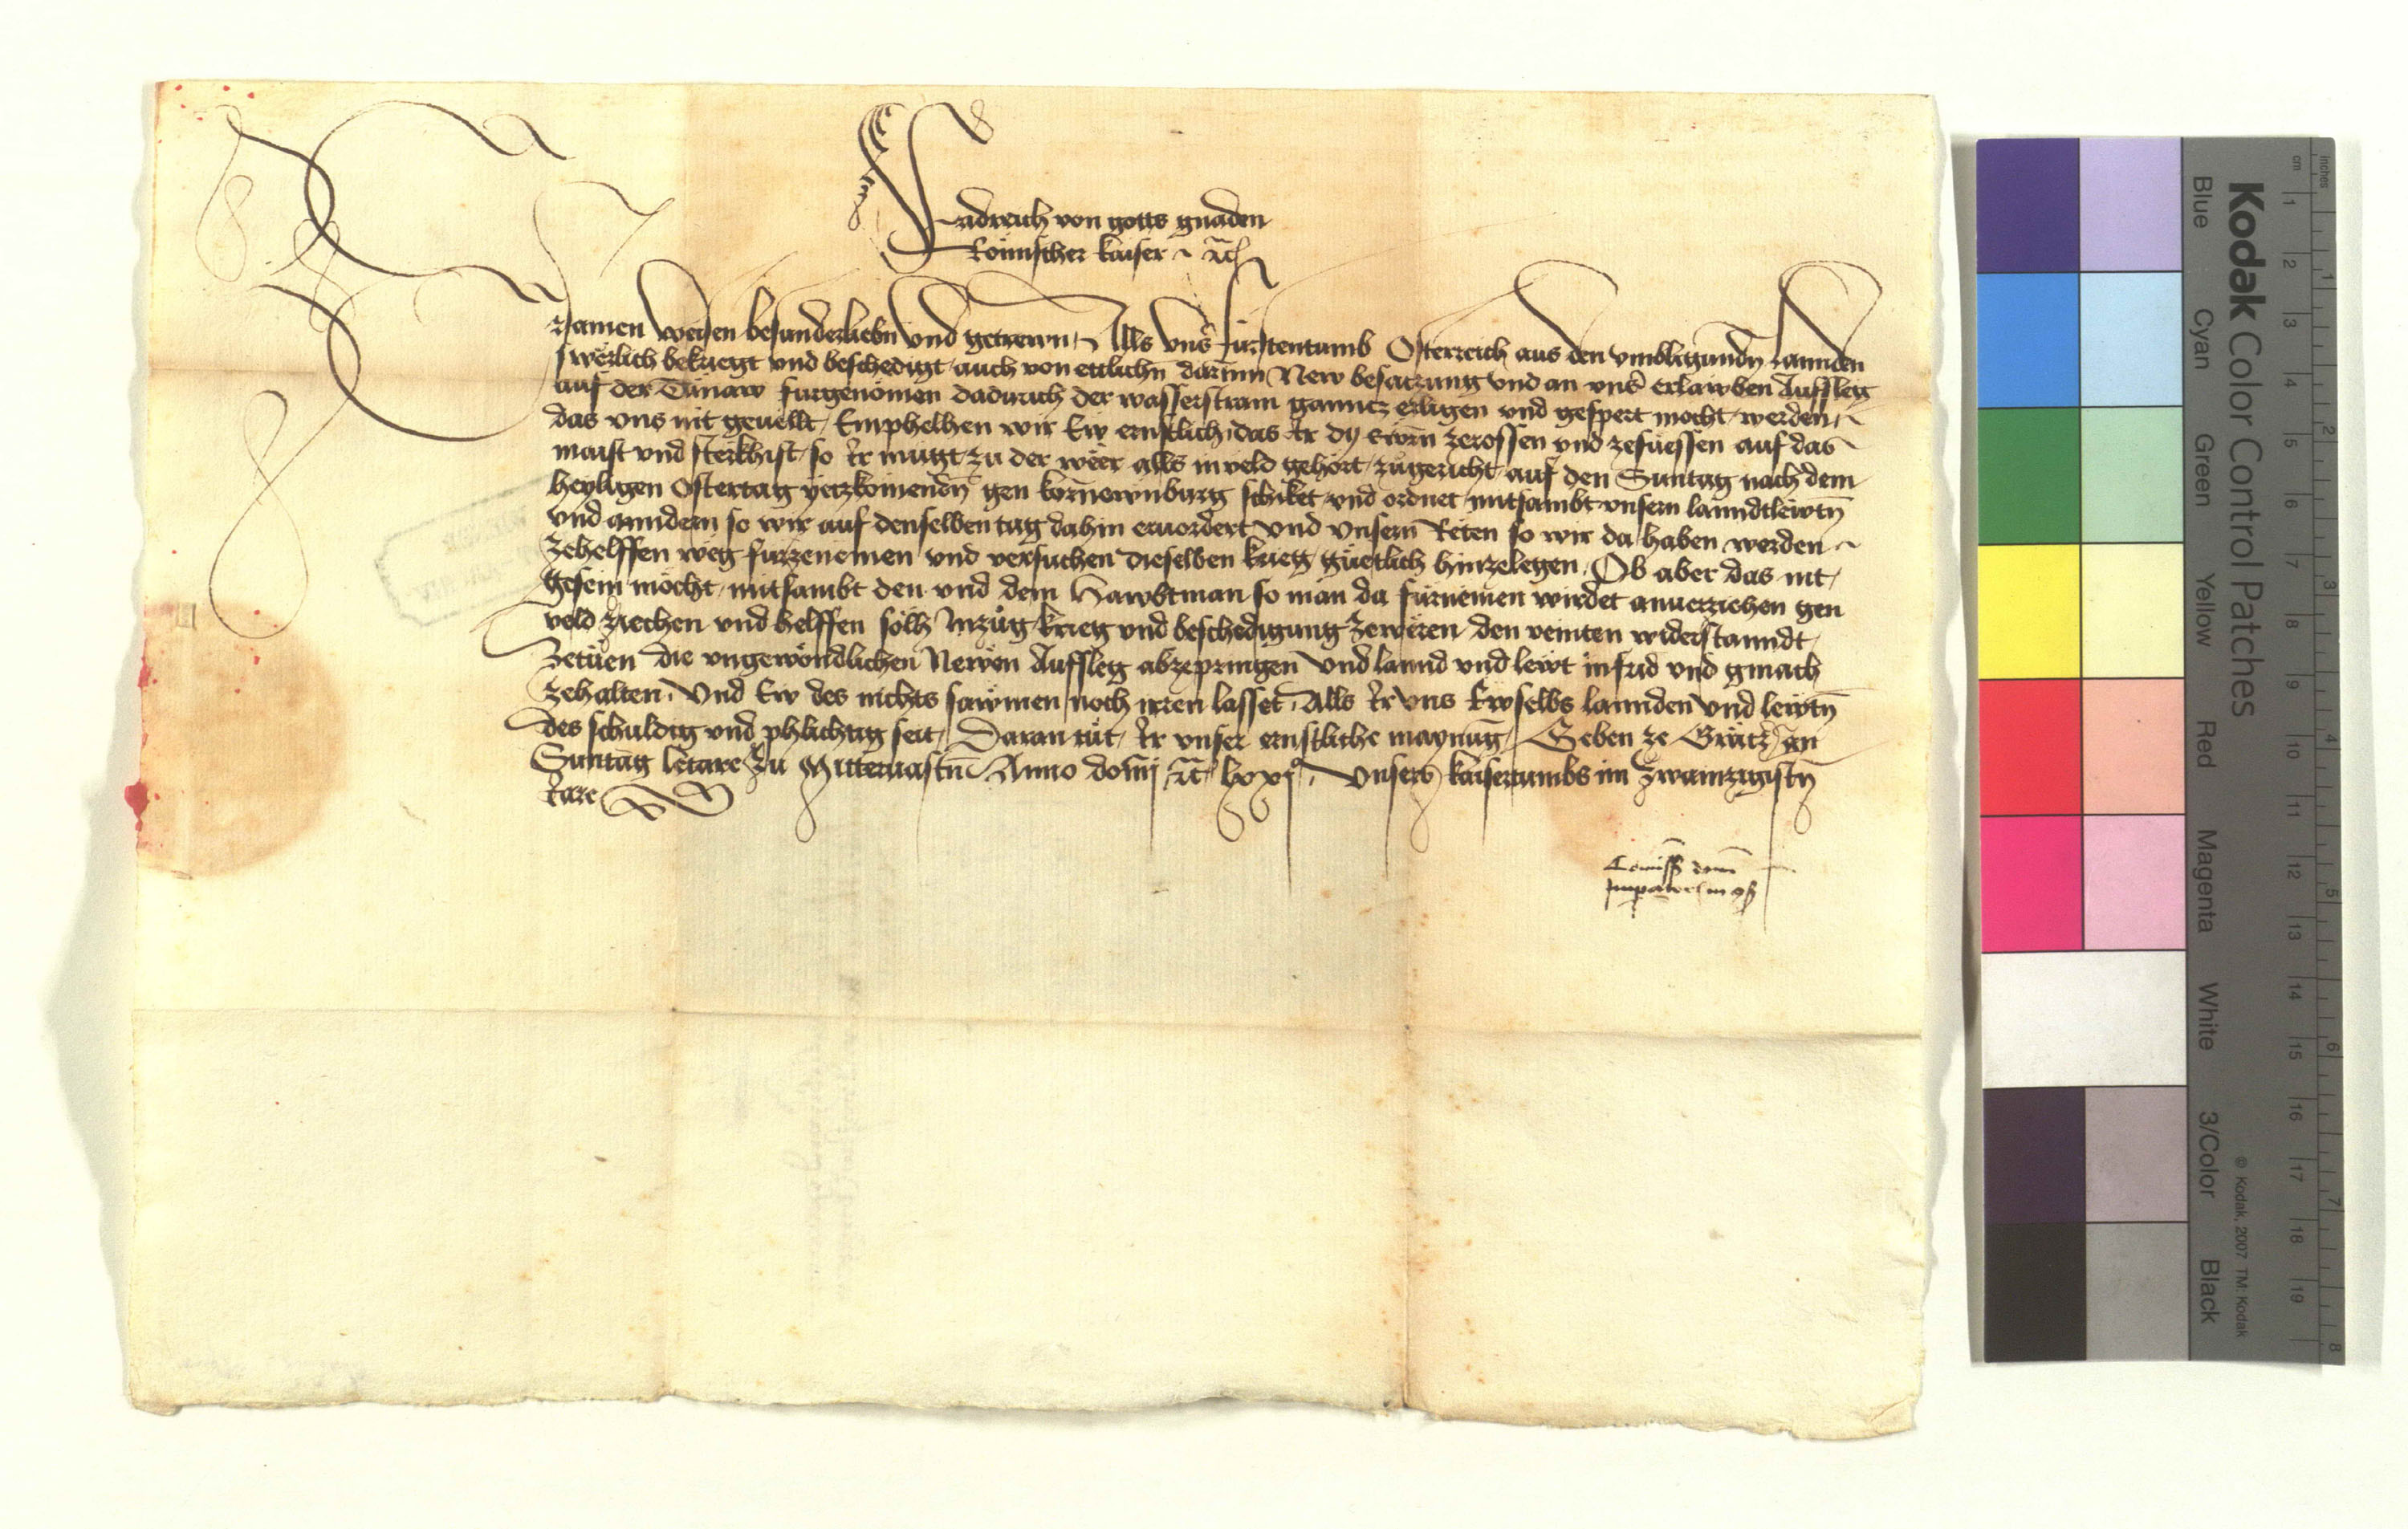 Fridreich von gotts gnaden
Römischer kaiser ~ ꝛc̃
Ersamen weisen besunderliebn vnd getrewn, Alls vnser fürstentumb Österreich aus den vmbligundn Lannden
swërlich bekriegt vnd beschedigt, auch von ettlichn darinn New besatzung vnd an vnser erlawben Aufsleg
auf der Tunaw furgenomen dadurch der wasserstram ganntz erligen vnd gespert mocht werden,
das vns nit geuellt, Emphelhen wir Ew ernstlich, das Ir dy ewrn zerossen vnd zefuessen auf das
maist vnd sterkhist so Ir mugt, zu der wëer alls in veld gehört, zugericht, auf den Suntag nach dem
heyligen Ostertag yetzkomendn gen kornewnburg schiket vnd ordnet mitsambt vnsern lanndtlewtn
vnd anndern so wir auf denselben tag dahin eruordert vnd vnsern Reten so wir da haben werden
zehelffen weg furzenemen vnd versuchen dieselben krieg guetlich hinzelegen, Ob aber das nit
gesein möcht, mitsambt den vnd dem Hawbtman so man da furnemen wirdet anuerziehen gen
veld ziechen vnd helffen sölh Inzüg krieg vnd beschedigung zeweren, den veinten widerstanndt
zetuen die vngewöndlichen Newen Aufsleg abzepringen vnd lannd vnd lewt in frid vnd gmach
zehalten, Vnd Ew des nichts sawmen noch irren lasset, Alls Ir vns Ewselbs lannden vnd lewtn
des schuldig vnd phlichtig seit, Daran tut Ir vnser ernstliche maynung, Geben ze Grätz an
Suntag letare zu Mitteruastn Anno domi ꝛc̃ lxxjº, Vnsers kaisertumbs im zwainzigistn
Jare
Com̃iss domi
Imperatoris in cons
Kodak Color Control Patches
Blue Cyan Green Yellow Red Magenta White 3/Color Black
© Kodak, 2007 TM: Kodak
cm 1 2 3 4 5 6 7 8 9 10 11 12 13 14 15 16 17 18 19
inches 1 2 3 4 5 6 7 8